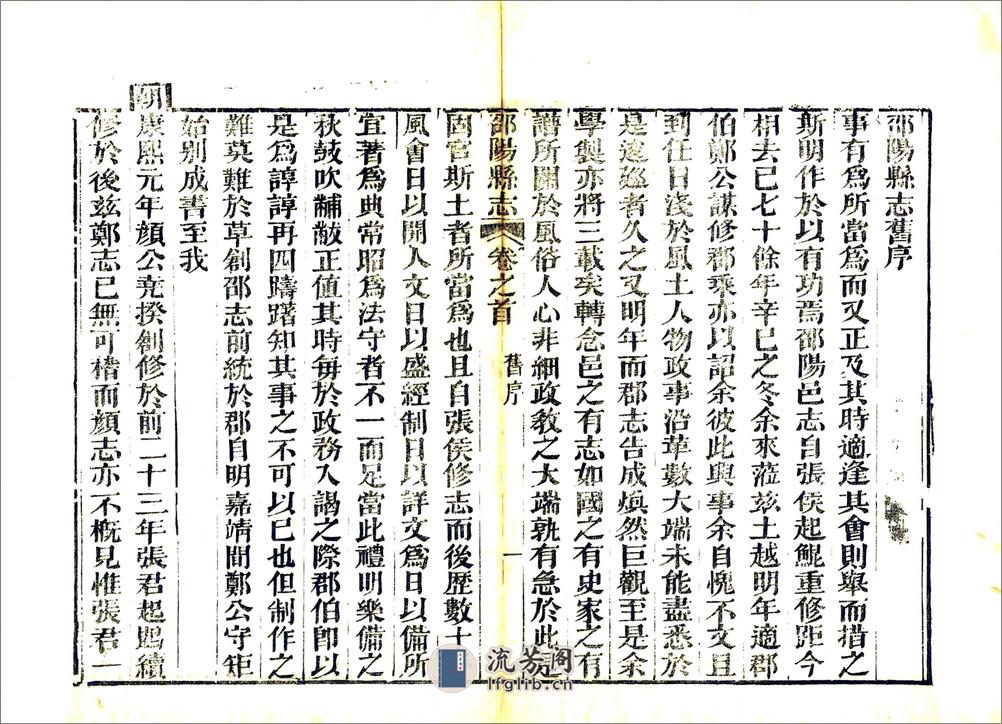 邵陽縣志舊序
事有爲所當爲而又正及其時適逢其會則舉而措之
斯明作於以有功焉邵陽邑志自張侯起鯤重修距今
相去已七十餘年辛巳之冬余來蒞茲土越明年適郡
伯鄭公謀修郡乘亦以詔余彼此與事余自愧不文且
到任日淺於風土人物政事沿革數大端未能盡悉於
是遂巡者久之又明年而郡志告成煥然巨觀至是余
學製亦將三載矣轉念邑之有志如國之有史家之有
譜所關於風俗人心非細政敎之大端孰有急於此是
邵陽縣志 卷之首 舊序 一
固官斯土者所當爲也且自張侯修志而後歷數十年
風會日以開人文日以盛經制日以詳文爲日以備所
宜著爲典常昭爲法守者不一而足當此禮明樂備之
秋鼓吹黼黻正值其時每於政務入謁之際郡伯卽以
是爲諄諄再四躊躇知其事之不可以已也但制作之
難莫難於草創邵志前統於郡自明嘉靖間鄭公守矩
始別成書至我
朝
康熙元年顏公堯揆創修於前二十三年張君起鯤續
修於後茲鄭志已無可稽而顏志亦不槪見惟張君一
流芳阁
lfglib.cn